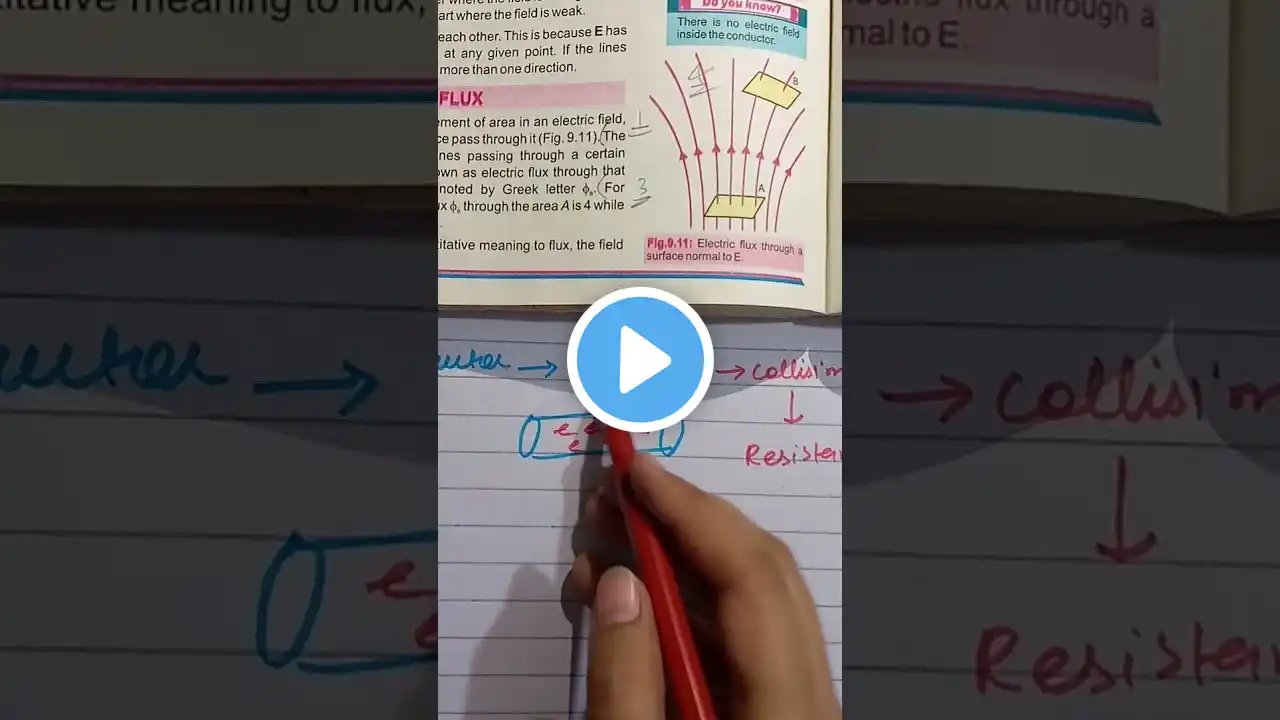 art where the field is weak.
each other. This is because E has
at any given point. If the lines
more than one direction.
FLUX
ement of area in an electric field,
ce pass through it (Fig. 9.11). The
nes passing through a certain
own as electric flux through that
noted by Greek letter ϕₑ. For
ux ϕₑ through the area A is 4 while
itative meaning to flux, the field
Do you know?
There is no electric field
inside the conductor.
4
B
1
3
A
Fig.9.11: Electric flux through a
surface normal to E.
→ → Collision
↓
e e
e
Resistan
itative meaning to flux,
flux through a
mal to E.
→ → Collision
↓
e
Resistan